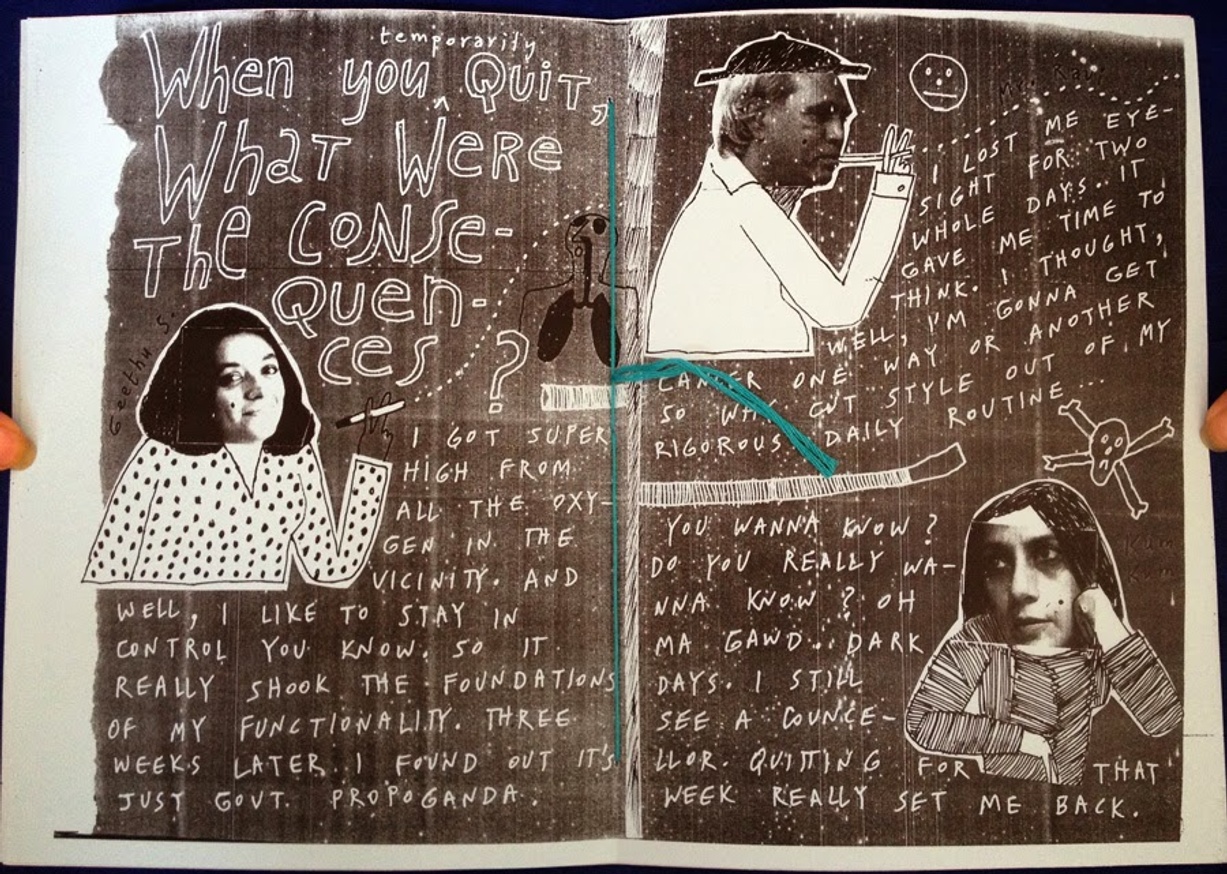 temporarily
When you ^ Quit,
What Were
The CONSe-
Quen-
ces ?
Geethu S.
I GOT SUPER
HIGH FROM
ALL THE OXY-
GEN IN THE
VICINITY. AND
WELL, I LIKE TO STAY IN
CONTROL YOU KNOW. SO IT
REALLY SHOOK THE FOUNDATIONS
OF MY FUNCTIONALITY. THREE
WEEKS LATER I FOUND OUT IT'S
JUST GOVT. PROPOGANDA.
Mr. Ravi
I LOST ME EYE-
SIGHT FOR TWO
WHOLE DAYS.. IT
GAVE ME TIME TO
THINK. I THOUGHT,
WELL, I'M GONNA GET
CANCER ONE WAY OR ANOTHER
SO WHY CUT STYLE OUT OF MY
RIGOROUS DAILY ROUTINE...
YOU WANNA KNOW ?
DO YOU REALLY WA-
NNA KNOW ? OH
MA GAWD.. DARK
DAYS. I STILL
SEE A COUNCE-
LLOR. QUITTING FOR THAT
WEEK REALLY SET ME BACK.